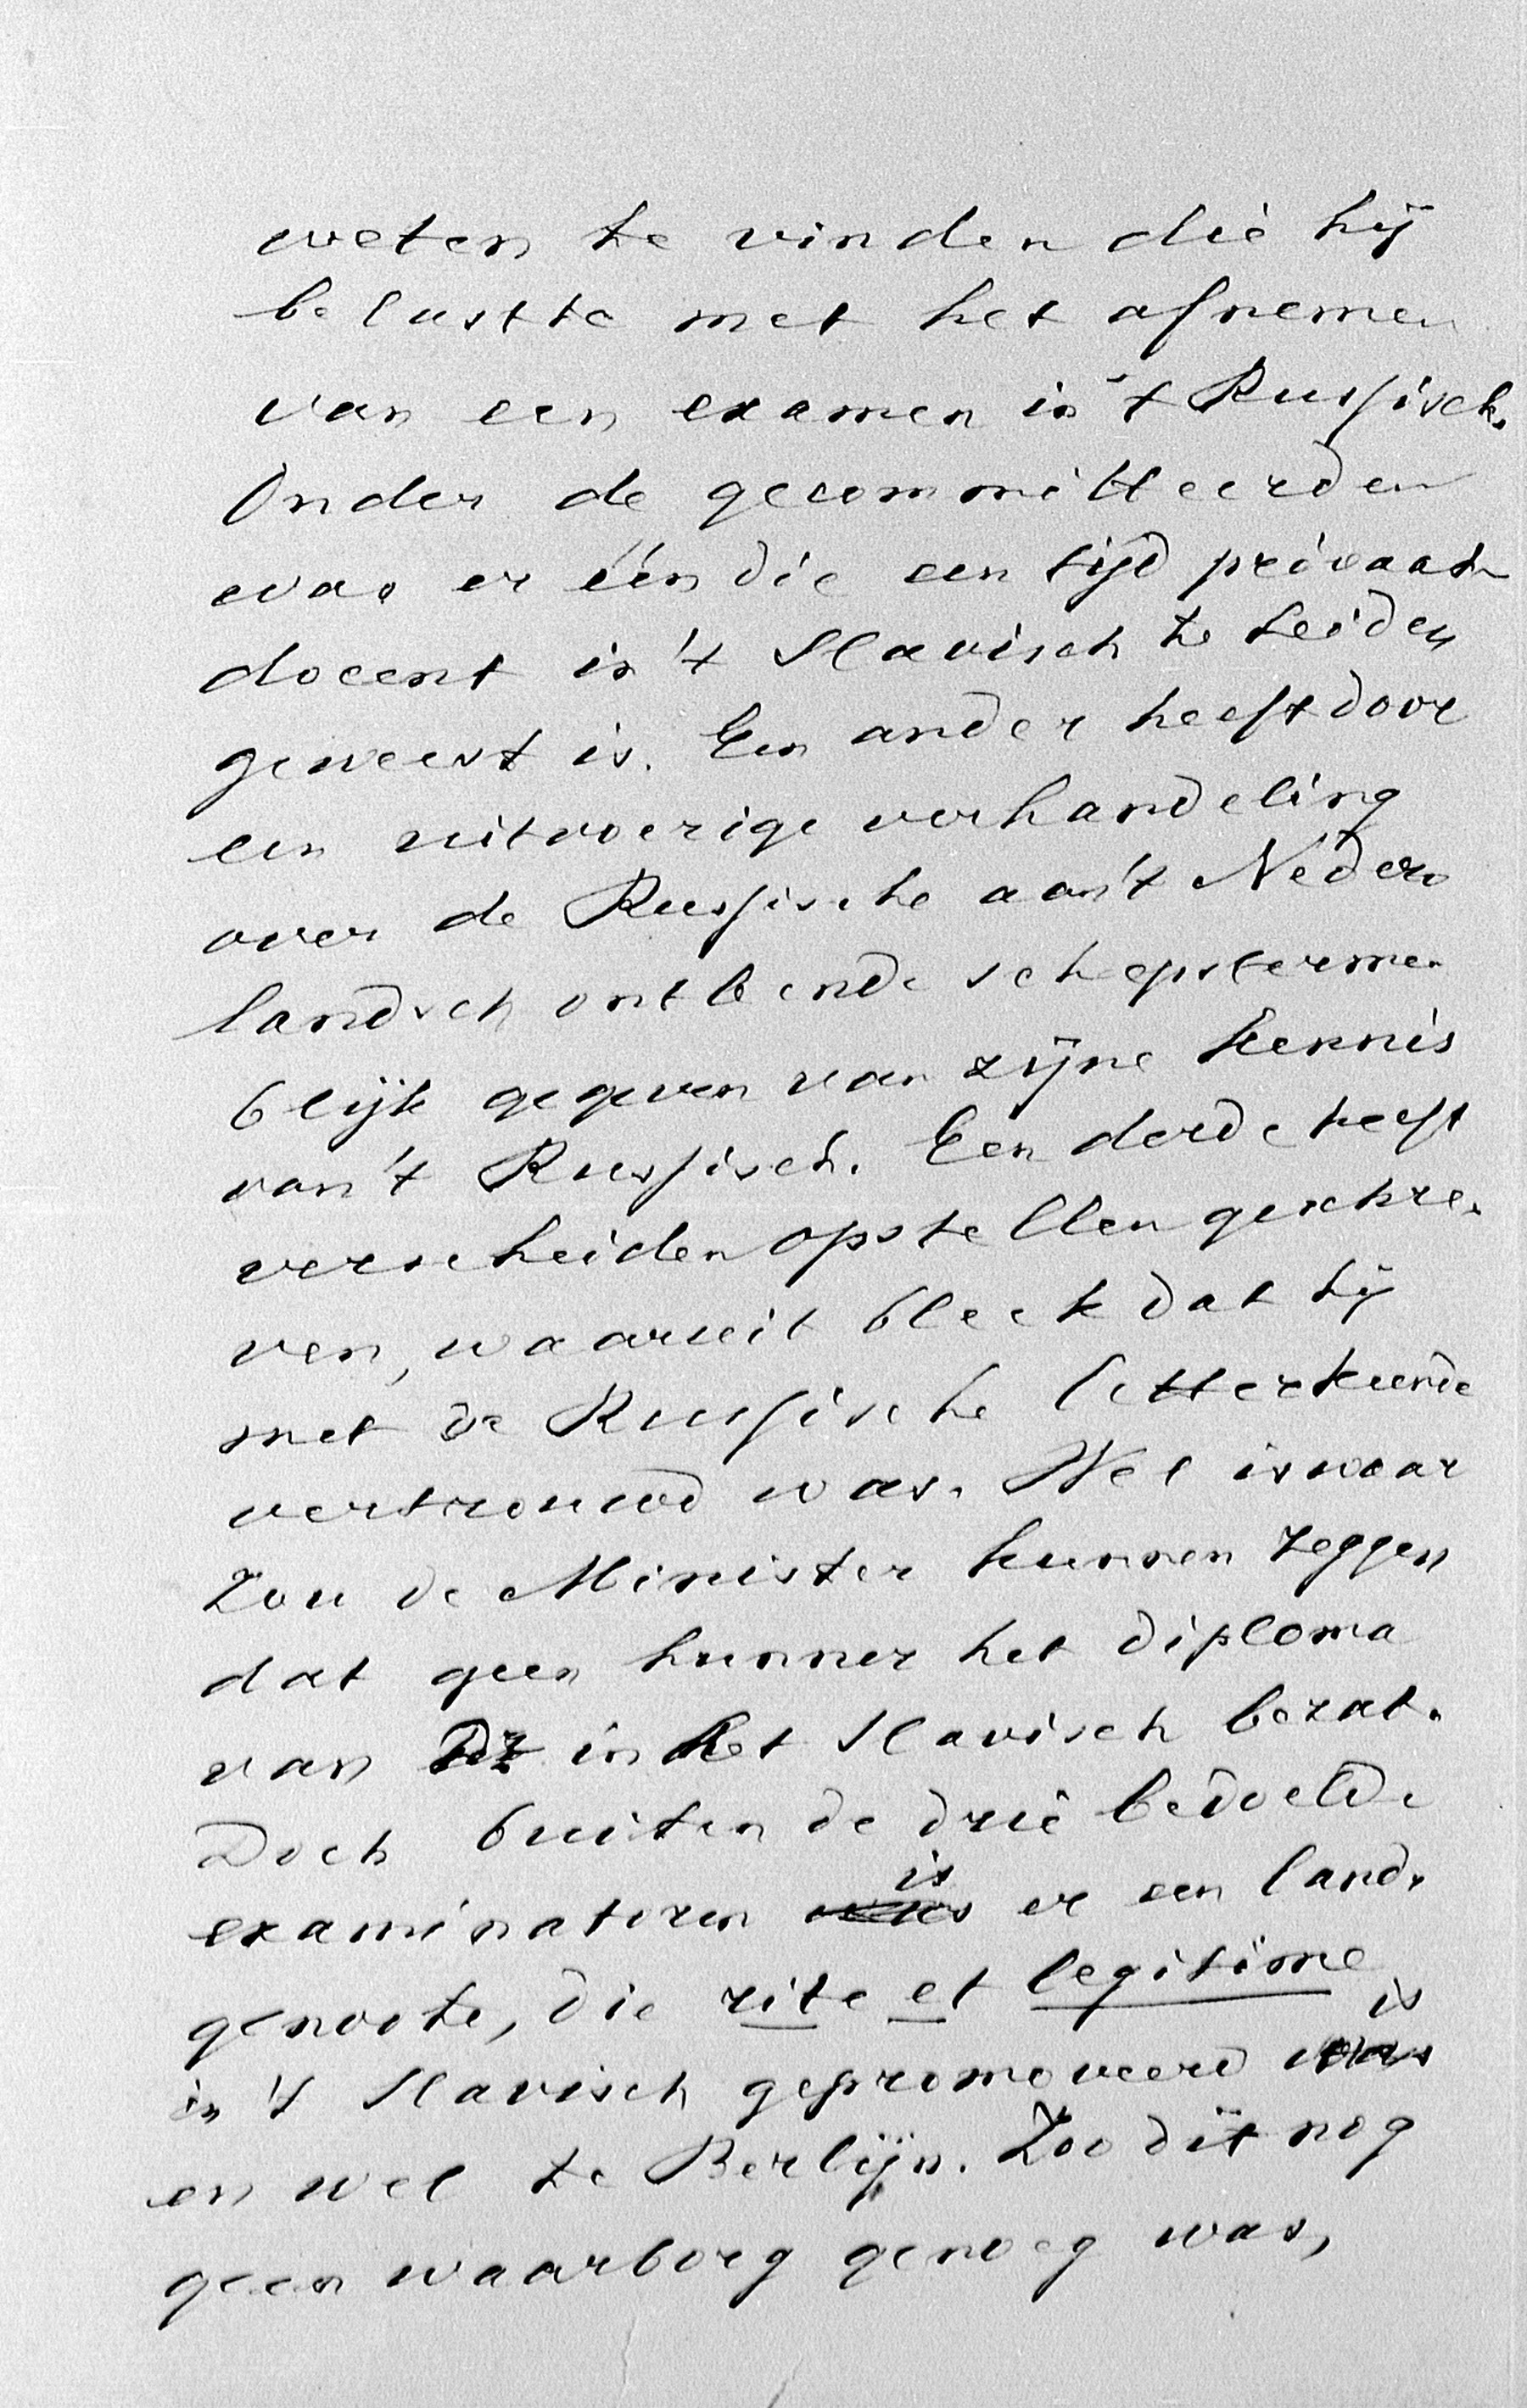 weten te vinden die hij
belastte met het afnemen
van een examen in 't Russisch.
Onder de gecommitteerden
was er één die een tijd privaat-
docent in 't Slavisch te Leiden
geweest is. Een ander heeft door
een uitvoerige verhandeling
over de Russische aan 't Neder-
landsch ontleende scheepstermen
blijk gegeven van zijne kennis
van 't Russisch. Een derde heeft
verscheiden opstellen geschre-
ven, waaruit bleek dat hij
met de Russische letterkunde
vertrouwd was. Wel is waar
zou de Minister kunnen zeggen
dat geen hunner het diploma
van Dr in het Slavisch bezat.
Doch buiten de drie bedoelde
examinatoren was is er een land-
genoote, die rite et legitime
in 't Slavisch gepromoveerd was is
en wel te Berlijn. Zoo dit nog
geen waarborg genoeg was,